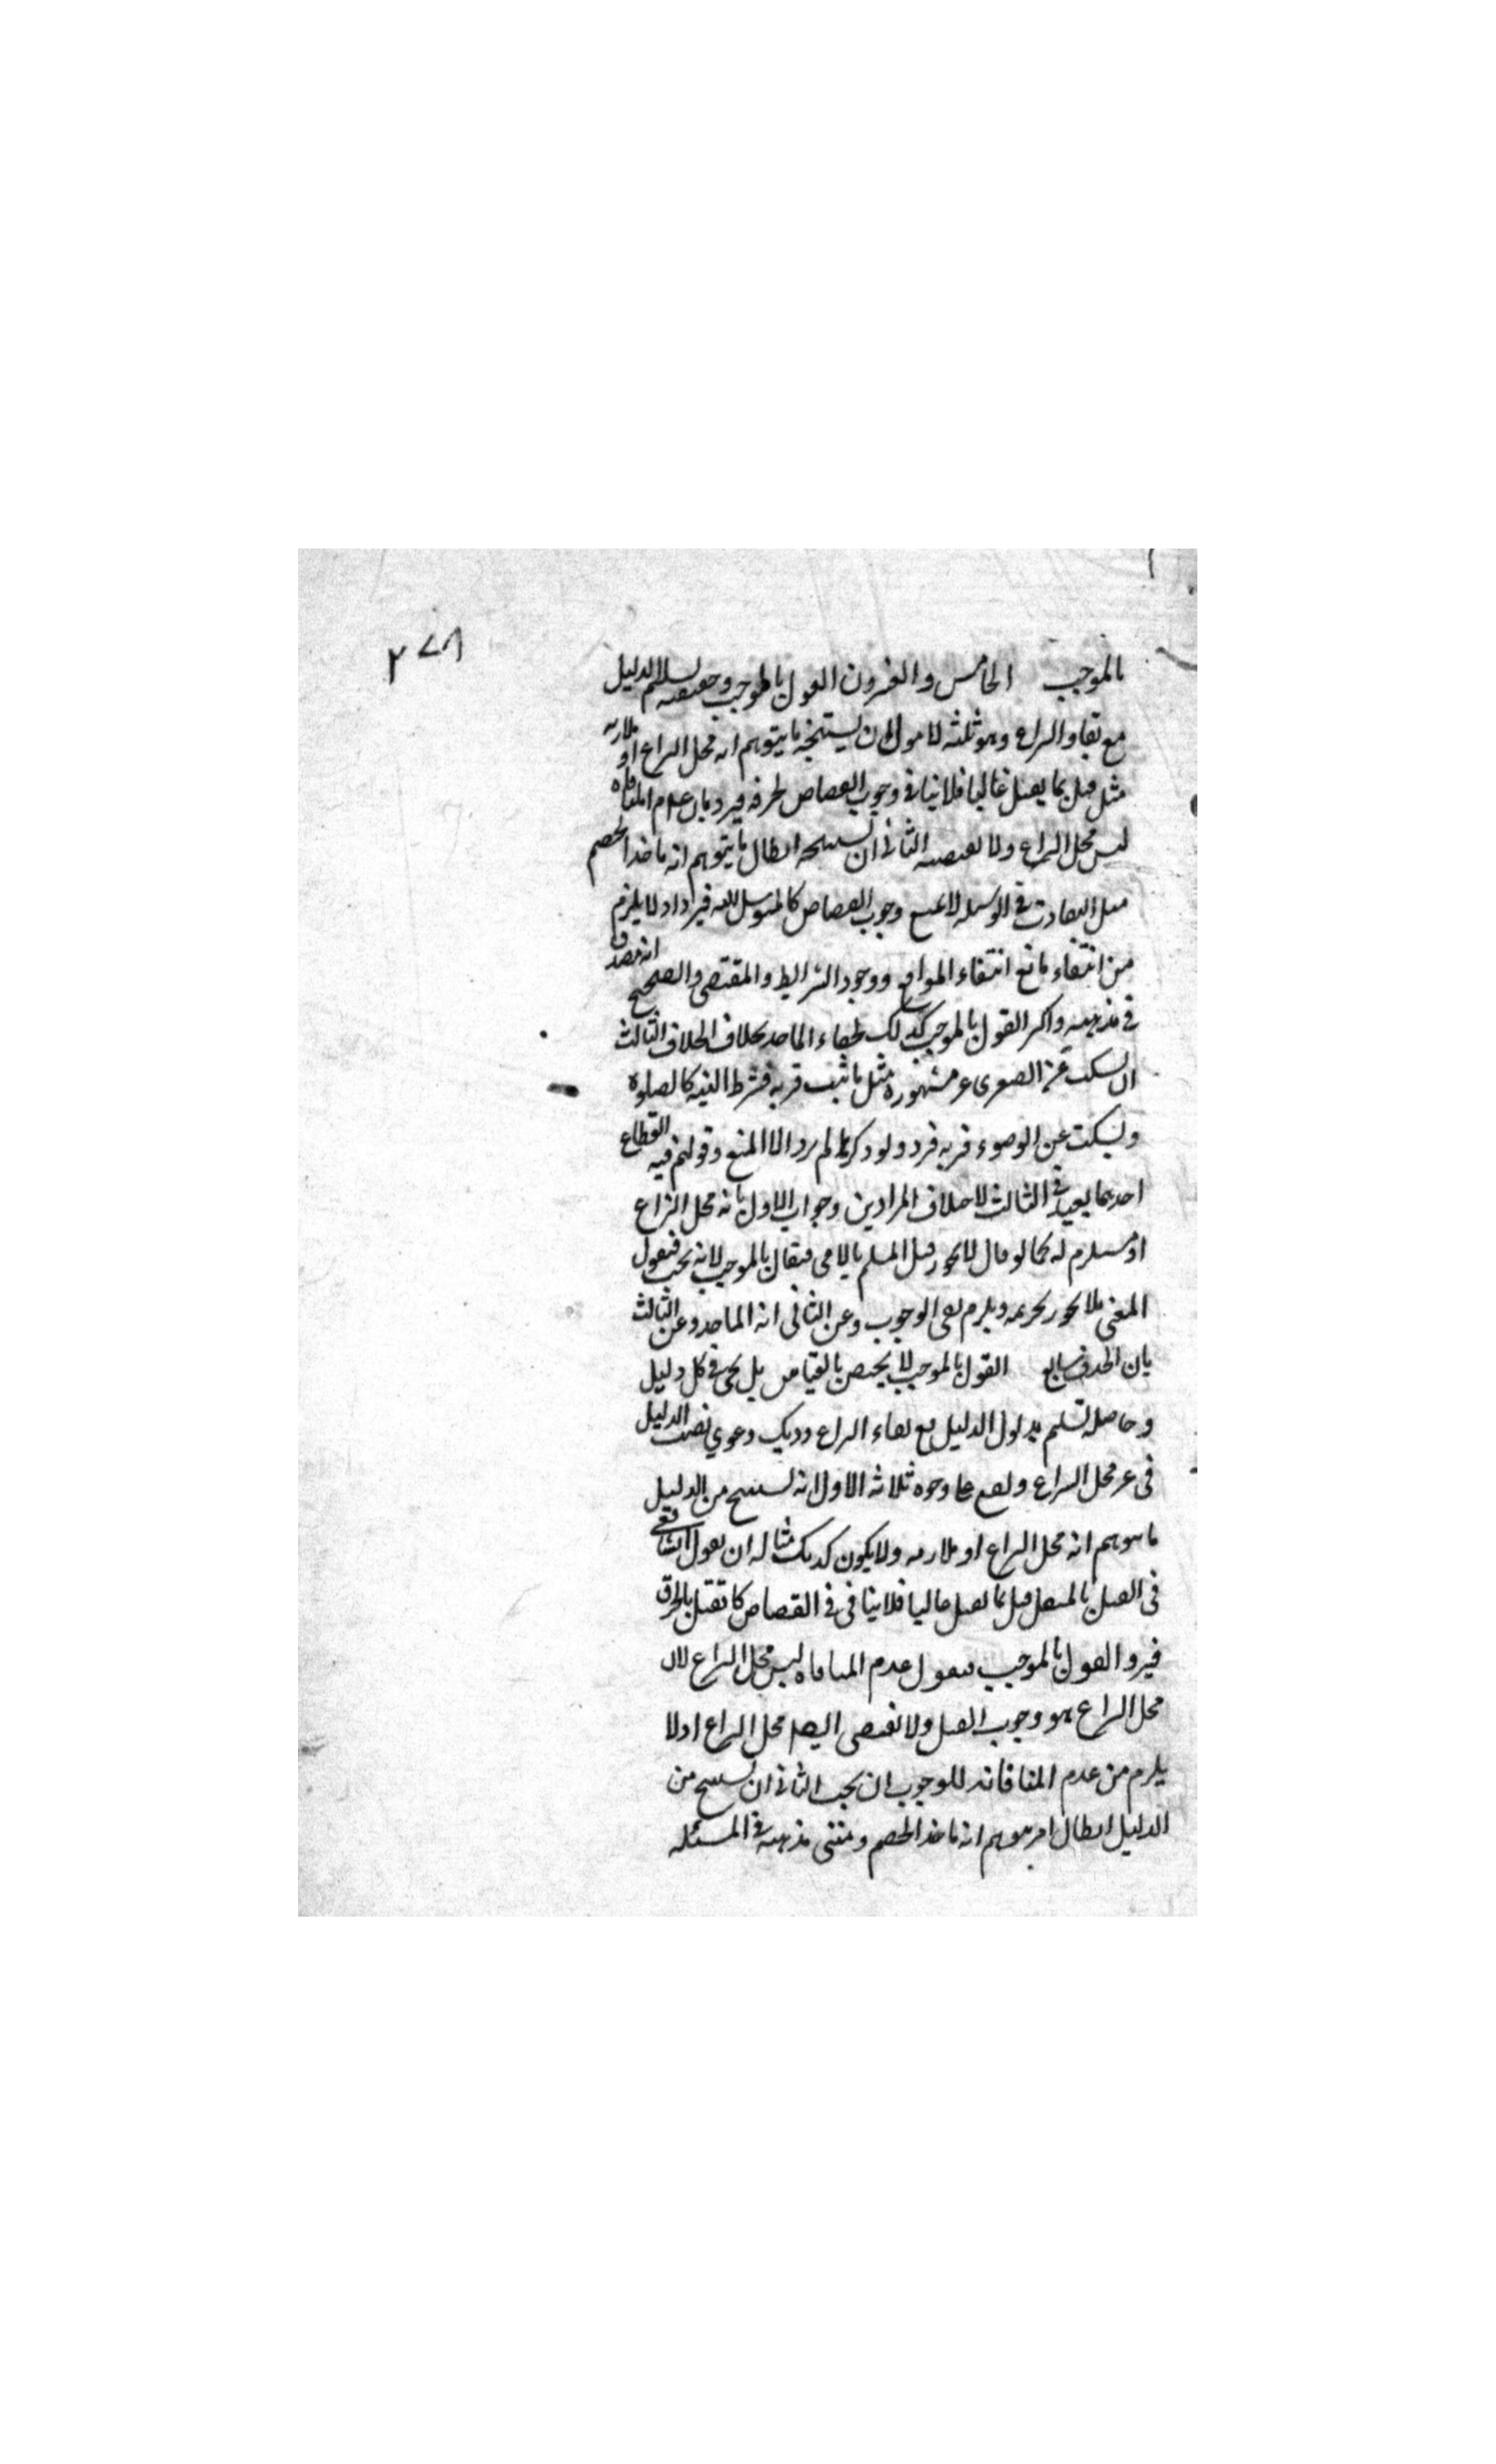 ٢٧٨
بالموجب الخامس والعشرون القول بالموجب وحقيقته تسليم الدليل
مع بقاء النزاع وهو ثلثه الاول ان يستنتجه ما يتوهم انه محل النزاع او ملازمه
مثل قتل بما يقتل غالبا فلا ينافي وجوب القصاص كحرقه فيرد بان عدم المنافاه
ليس محل النزاع ولا يقتضيه الثاني ان يستنتجه ابطال ما يتوهم انه ماخذ الخصم
مثل التفاوت في الوسيله لا يمنع وجوب القصاص كالمتوسل اليه فيرد اذ لا يلزم
من انتفاء مانع انتفاء الموانع ووجود الشرايط والمقتضي والصحيح انه مصدق
في مذهبه واكثر القول بالموجب كذلك لخفاء الماخذ بخلاف محل الخلاف الثالث
ان يسكت عن الصغرى غير مشهوره مثل ما ثبت قربه فشرط النيه كالصلوه
ويسكت عن الوضوء قربه فيرد ولو ذكرها لم يرد الا المنع وقولهم فيه انقطاع
احدهما بعيد في الثالث لاختلاف المرادين وجواب الاول بانه محل النزاع
او مستلزم له كما لو قال لا يجوز قتل المسلم بالذمي فيقال بالموجب لانه يجب فيقول
المعني بلا يجوز تحريمه ويلزم نفي الوجوب وعن الثاني انه الماخذ وعن الثالث
بان الحذف سايع القول بالموجب لا يختص بالقياس بل يجئ في كل دليل
وحاصله تسليم مدلول الدليل مع بقاء النزاع وذلك دعوي نصب الدليل
في غير محل النزاع ويقع على وجوه ثلاثه الاول انه يستنتج من الدليل
ما يتوهم انه محل النزاع او ملازمه ولا يكون كذلك مثاله ان يقول الشافعي
في القتل بالمثقل قتل بما يقتل غالبا فلا ينافي في القصاص كالقتل بالحرق
فيرد القول بالموجب فيقول عدم المنافاه ليس محل النزاع لان
محل النزاع هو وجوب القتل ولا يقتضي ايضا محل النزاع اذ لا
يلزم من عدم المنافاته للوجوب ان يجب الثاني ان يستنتج من
الدليل ابطال امر يتوهم انه ماخذ الخصم ومبنى مذهبه في المسئله